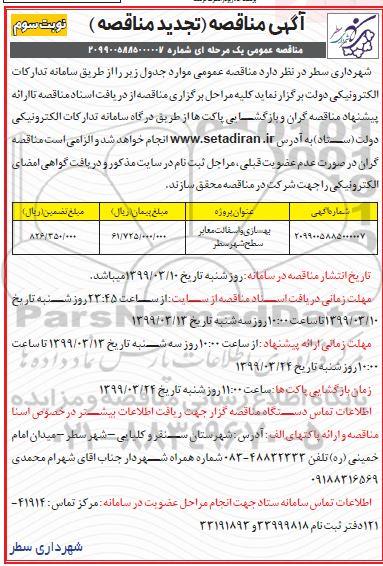 آگهی مناقصه (تجدید مناقصه)
نوبت سوم
مناقصه عمومی یک مرحله ای شماره ۲۰۹۹۰۰۵۸۸۵۰۰۰۰۰۷
شهرداری سطر در نظر دارد مناقصه عمومی موارد جدول زیر را از طریق سامانه تدارکات
الکترونیکی دولت برگزار نماید کلیه مراحل برگزاری مناقصه از دریافت اسناد مناقصه تا ارائه
پیشنهاد مناقصه گران و بازگشـــایی پاکت ها از طریق درگاه سامانه تدارکات الکترونیکی
دولت (ســـتاد) به آدرس www.setadiran.ir انجام خواهد شد و الزامی است مناقصه
گران در صورت عدم عضویت قبلی، مراحل ثبت نام در سایت مذکور و دریافت گواهی امضای
الکترونیکی را جهت شرکت در مناقصه محقق سازند.
شماره آگهی	عنوان پروژه	مبلغ پیمان(ریال)	مبلغ تضمین(ریال)
۲۰۹۹۰۰۵۸۸۵۰۰۰۰۰۷	بهسازی و آسفالت معابر سطح شهر سطر	۶۱/۷۲۵/۰۰۰/۰۰۰	۸۲۶/۳۵۰/۰۰۰
تاریخ انتشار مناقصه در سامانه: روز شنبه تاریخ ۱۳۹۹/۰۳/۱۰ میباشد.
مهلت زمانی دریافت اســـناد مناقصه از ســـایت: از ســـاعت ۲۳:۴۵ روز شـــنبه تاریخ
۱۳۹۹/۰۳/۱۰ تا ساعت ۱۰:۰۰ روز سه شنبه تاریخ ۱۳۹۹/۰۳/۱۳
مهلت زمانی ارائه پیشنهاد: از ساعت ۱۰:۰۰ روز سه شـــنبه تاریخ ۱۳۹۹/۰۳/۱۳ تا ساعت
۱۰:۰۰ روز شنبه تاریخ ۱۳۹۹/۰۳/۲۴
زمان بازگشایی پاکت ها: ساعت ۱۱:۰۰ روز شنبه تاریخ ۱۳۹۹/۰۳/۲۴
اطلاعات تماس دســـتگاه مناقصه گزار جهت دریافت اطلاعات بیشـــتر در خصوص اسناد
مناقصه و ارائه پاکتهای الف: آدرس: شهرستان ســـنقر و کلیایی – شهر سطر – میدان امام
خمینی (ره) تلفن ۴۸۸۳۲۳۳۳-۰۸۳ شماره همراه شـــهردار جناب آقای شهرام محمدی
۰۹۱۸۸۳۱۶۵۶۹
اطلاعات تماس سامانه ستاد جهت انجام مراحل عضویت در سامانه: مرکز تماس: ۴۱۹۱۴-
۱۲۱ دفتر ثبت نام ۳۳۹۹۹۸۱۸ و ۳۳۱۹۱۸۹۳
شهرداری سطر